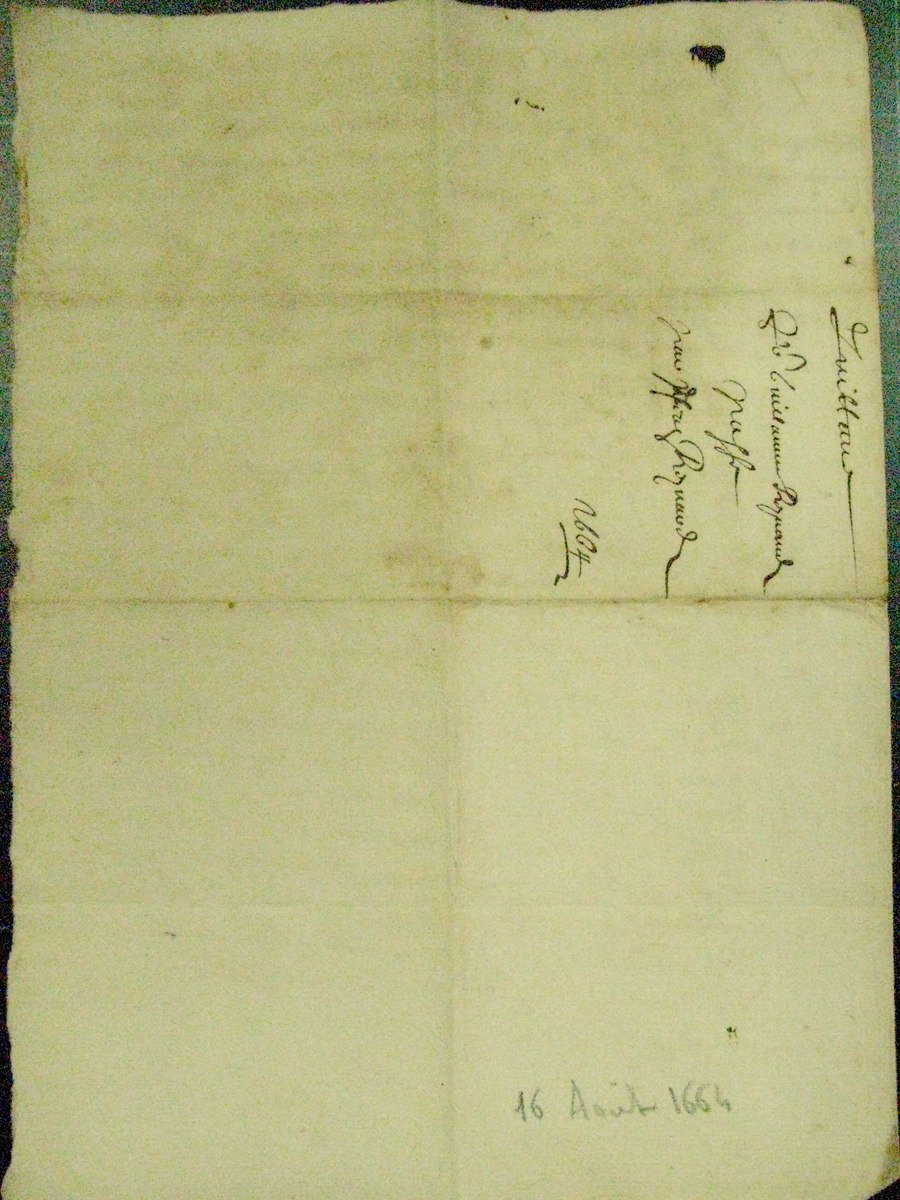 Quittance
Guillaume Reynaud
passe
par Reynaud
1664
16 Août 1664